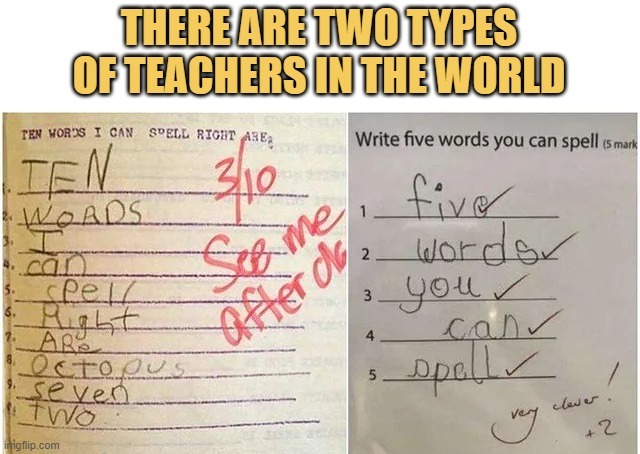 THERE ARE TWO TYPES
OF TEACHERS IN THE WORLD
TEN WORDS I CAN SPELL RIGHT ARE:
1. TEN
2. WORDS
3. I
4. can
5. spell
6. Right
7. ARe
8. Octopus
9. seven
two
3/10
See me
after
Write five words you can spell (5 mark
1 five ✓
2 words ✓
3 you ✓
4 can ✓
5 spell ✓
very clever!
+2
imgflip.com